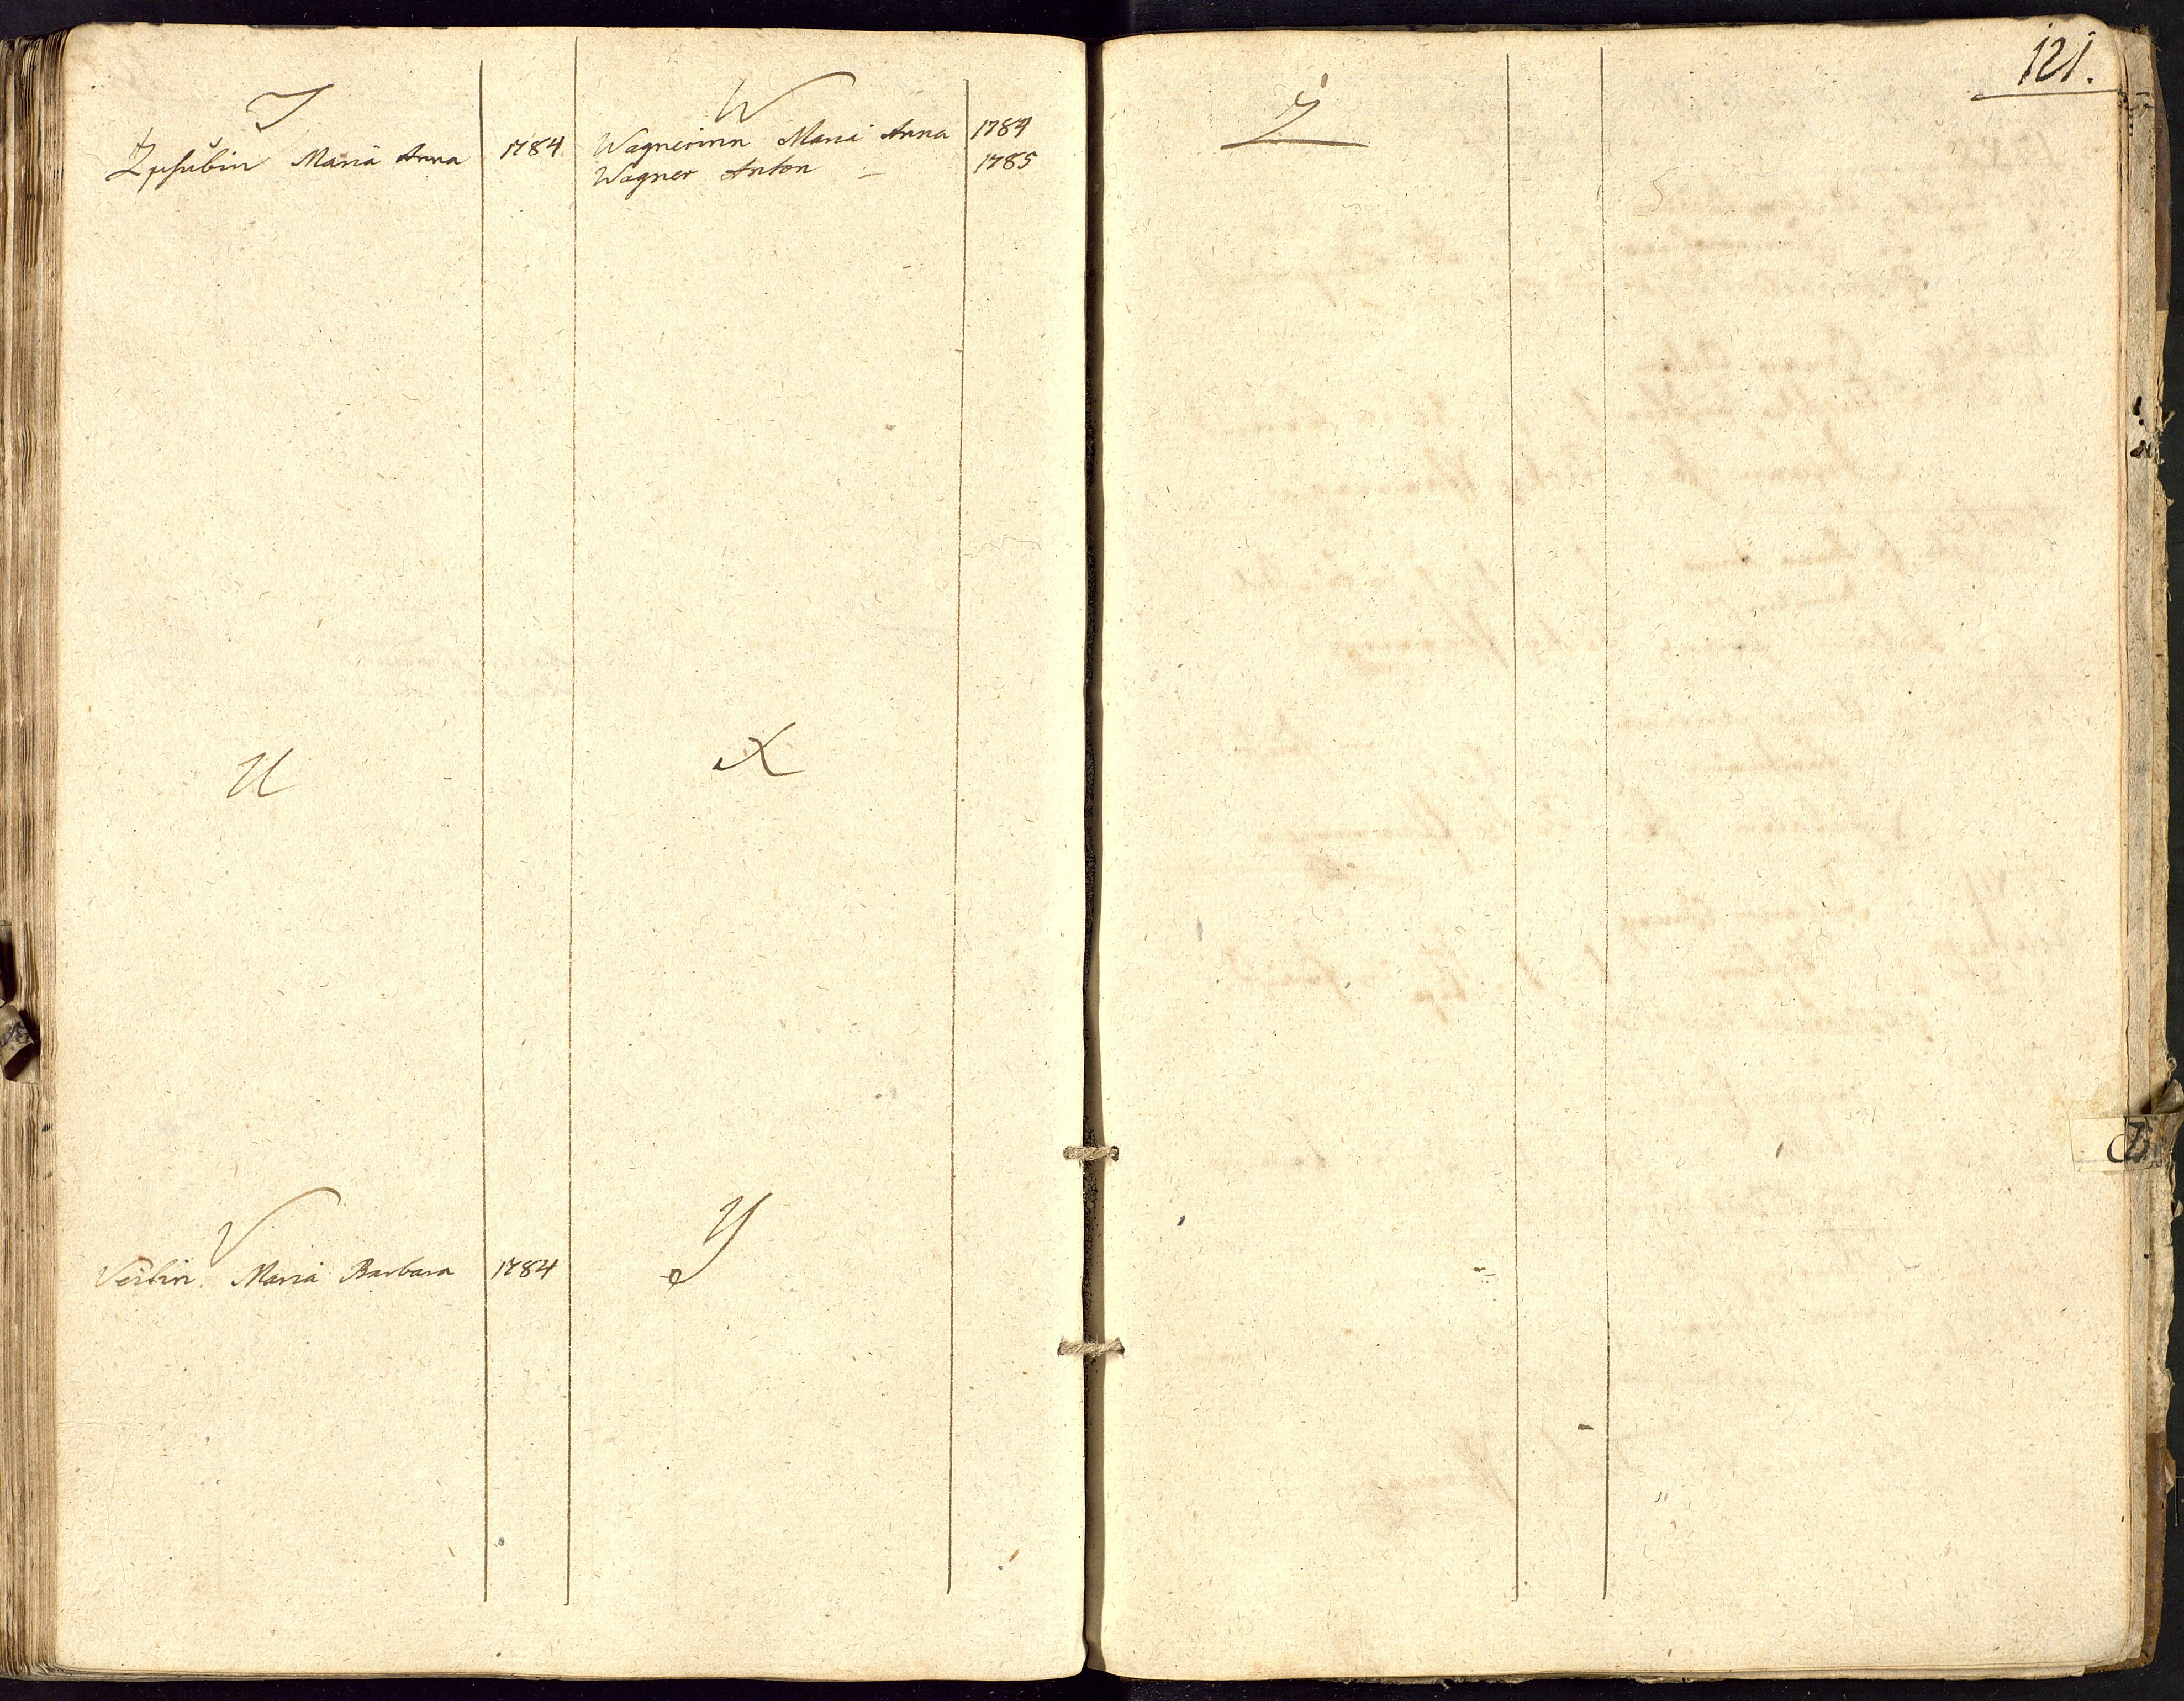 T
Maria Anna 1784
U
V
Maria Barbara 1784
W
Wagnerinn Maria Anna 1784
Wagner Anton – 1785
X
Y
121.
Z